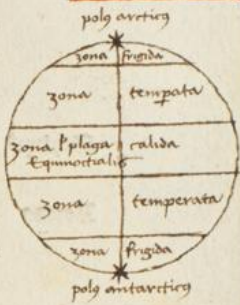 polꝰ arcticꝰ
zona frigida
zona temꝑata
zona ł plaga calida
Equinoctialis
zona temperata
zona frigida
polꝰ antarcticꝰ